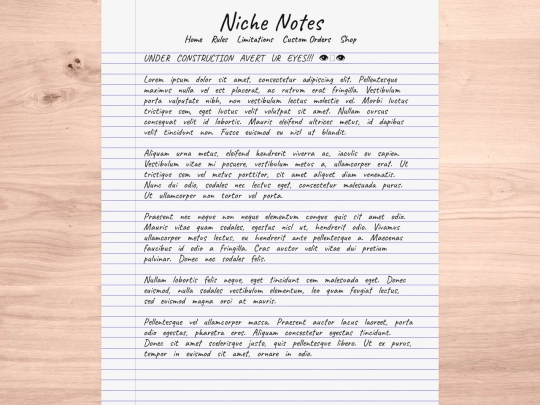 Niche Notes
Home Rules Limitations Custom Orders Shop
UNDER CONSTRUCTION AVERT UR EYES!!! 👁️▯👁️
Lorem ipsum dolor sit amet, consectetur adipiscing elit. Pellentesque
maximus nulla vel est placerat, ac rutrum erat fringilla. Vestibulum
porta vulputate nibh, non vestibulum lectus molestie vel. Morbi luctus
tristique sem, eget luctus velit volutpat sit amet. Nullam cursus
consequat velit id lobortis. Mauris eleifend ultrices metus, id dapibus
velit tincidunt non. Fusce euismod eu nisl ut blandit.
Aliquam urna metus, eleifend hendrerit viverra ac, iaculis eu sapien.
Vestibulum vitae mi posuere, vestibulum metus a, ullamcorper erat. Ut
tristique sem vel metus porttitor, sit amet aliquet diam venenatis.
Nunc dui odio, sodales nec lectus eget, consectetur malesuada purus.
Ut ullamcorper non tortor vel porta.
Praesent nec neque non neque elementum congue quis sit amet odio.
Mauris vitae quam sodales, egestas nisl ut, hendrerit odio. Vivamus
ullamcorper metus lectus, eu hendrerit ante pellentesque a. Maecenas
faucibus id odio a fringilla. Cras auctor velit vitae dui pretium
pulvinar. Donec nec sodales felis.
Nullam lobortis felis neque, eget tincidunt sem malesuada eget. Donec
euismod, nulla sodales vestibulum elementum, leo quam feugiat lectus,
sed euismod magna orci at mauris.
Pellentesque vel ullamcorper massa. Praesent auctor lacus laoreet, porta
odio egestas, pharetra eros. Aliquam consectetur egestas tincidunt.
Donec sit amet scelerisque justo, quis pellentesque libero. Ut ex purus,
tempor in euismod sit amet, ornare in odio.